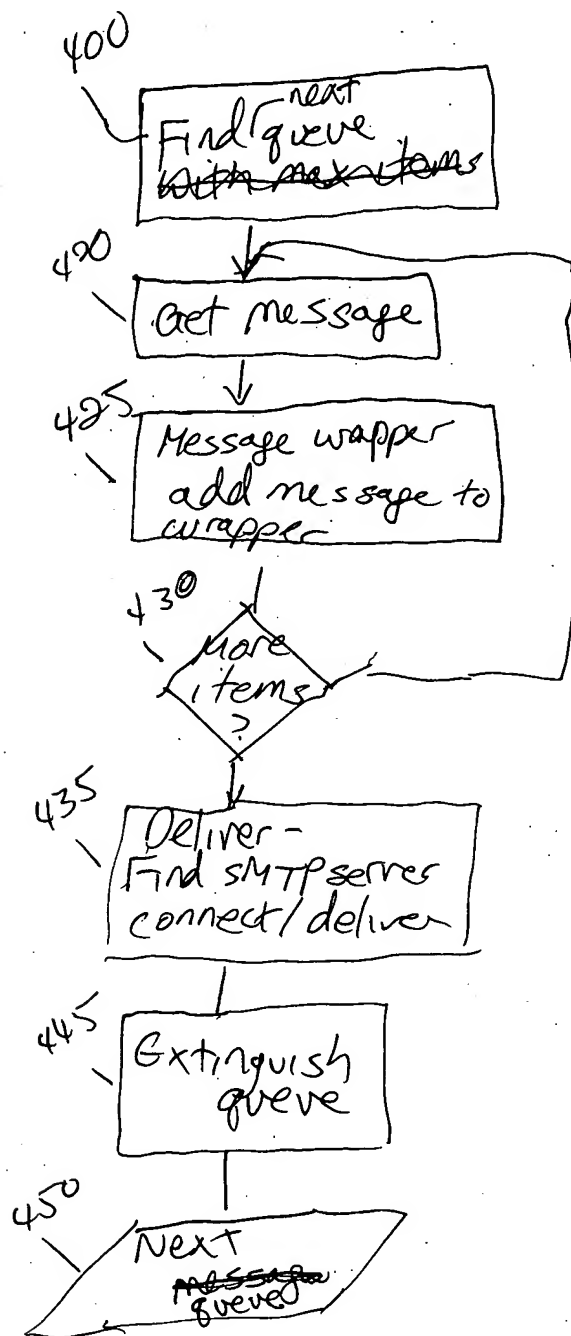 400
Find next queue
with max items
420
Get message
425
Message wrapper
add message to
wrapper
430
More
items
?
435
Deliver -
Find SMTP server
connect/deliver
445
Extinguish
queue
450
Next
message
queue